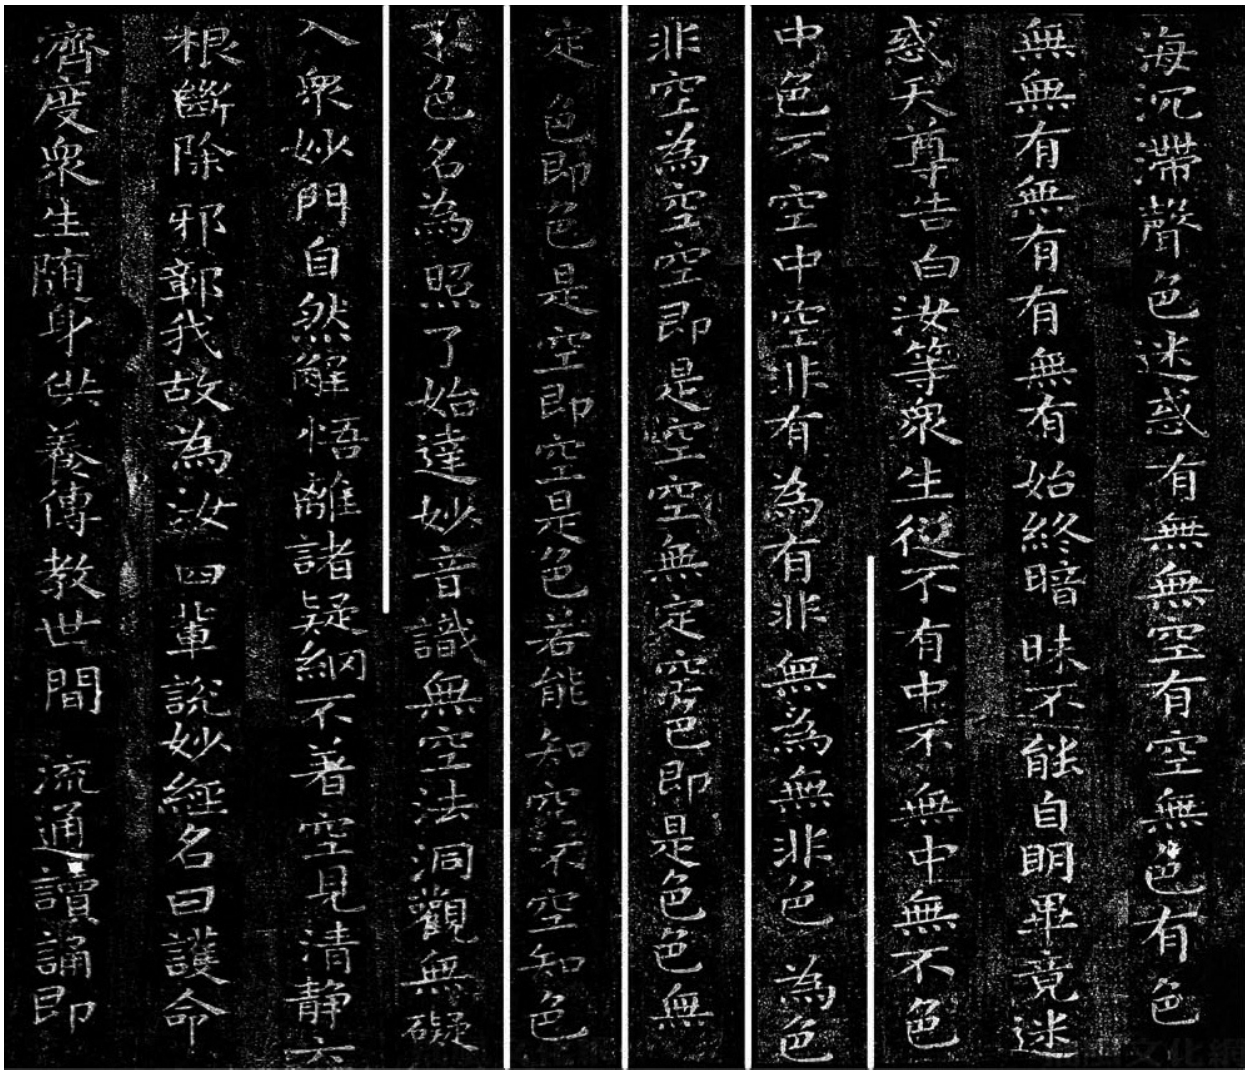 海沉滯聲色迷惑有無無空有空無色有色
無無有無有有無有始終暗昧不能自明畢竟迷
惑天尊告白汝等眾生從不有中不無中無不色
中色不空中空非有為有非無為無非色為色
非空為空空即是空空無定空色即是色色無
定色即色是空即空是色若能知空不空知色
不色名為照了始達妙音識無空法洞觀無礙
入眾妙門自然解悟離諸疑網不著空見清靜六
根斷除邪鄣我故為汝四輩說妙經名曰護命
濟度眾生随身供養傳教世間流通讀誦即